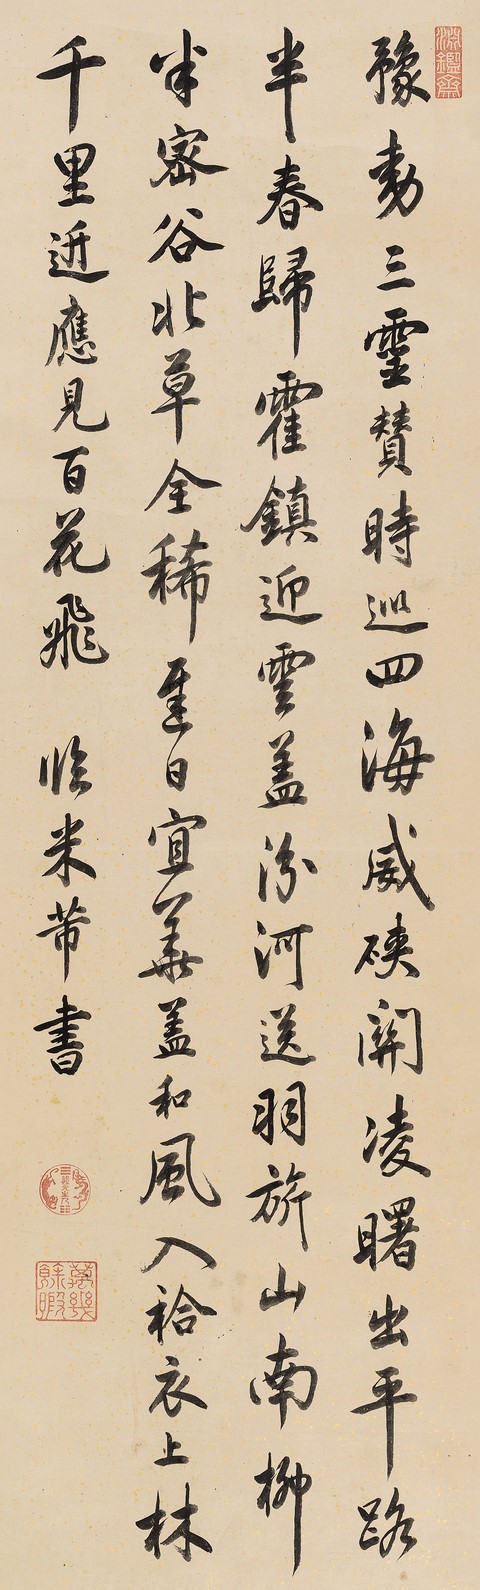 淵鑑齋
豫動三靈贊時巡四海威硤關凌曙出平路
半春歸霍鎮迎雲蓋汾河送羽旂山南柳
半密谷北草全稀遲日宜華蓋和風入袷衣上林
千里近應見百花飛 臨米芾書
萬幾餘暇